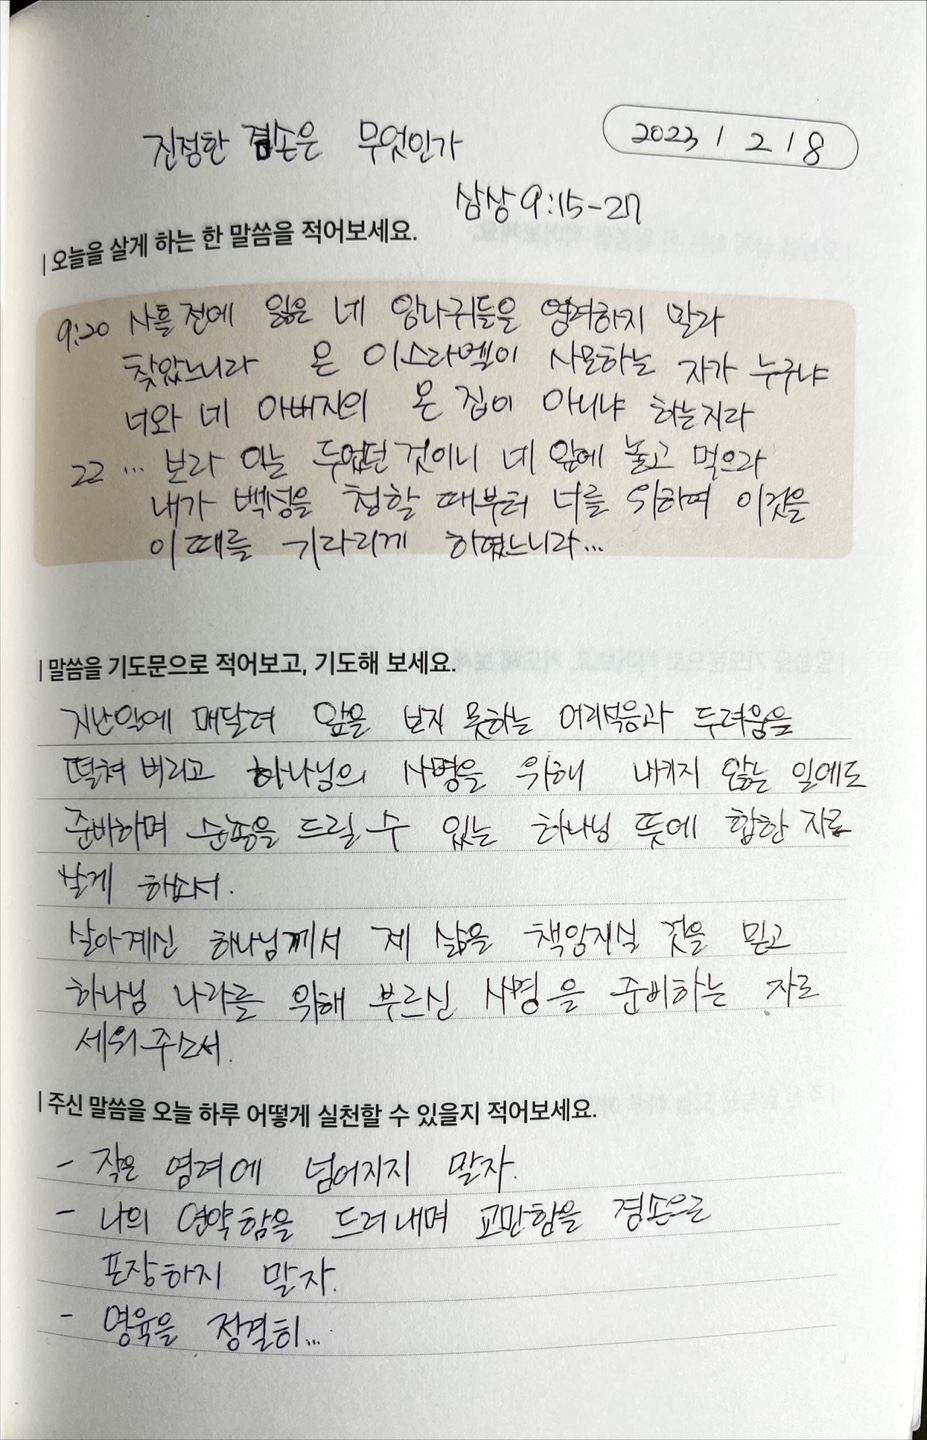 진정한 겸손은 무엇인가
2023 / 2 / 8
삼상 9:15-27
| 오늘을 살게 하는 한 말씀을 적어보세요.
9:20 사흘 전에 잃은 네 암나귀들을 염려하지 말라
찾았느니라 온 이스라엘이 사모하는 자가 누구냐
너와 네 아버지의 온 집이 아니냐 하는지라
22 ... 보라 이는 두었던 것이니 네 앞에 놓고 먹으라
내가 백성을 청할 때부터 너를 위하여 이것을
이 때를 기다리게 하였느니라...
| 말씀을 기도문으로 적어보고, 기도해 보세요.
지난일에 매달려 앞을 보지 못하는 어리석음과 두려움을
떨쳐 버리고 하나님의 사명을 위해 내키지 않는 일에도
준비하며 순종을 드릴 수 있는 하나님 뜻에 합한 자로
살게 하소서.
살아계신 하나님께서 제 삶을 책임지실 것을 믿고
하나님 나라를 위해 부르신 사명을 준비하는 자로
세워주소서.
| 주신 말씀을 오늘 하루 어떻게 실천할 수 있을지 적어보세요.
- 작은 염려에 넘어지지 말자.
- 나의 연약함을 드러내며 교만함을 겸손으로
포장하지 말자.
- 영육을 정결히...